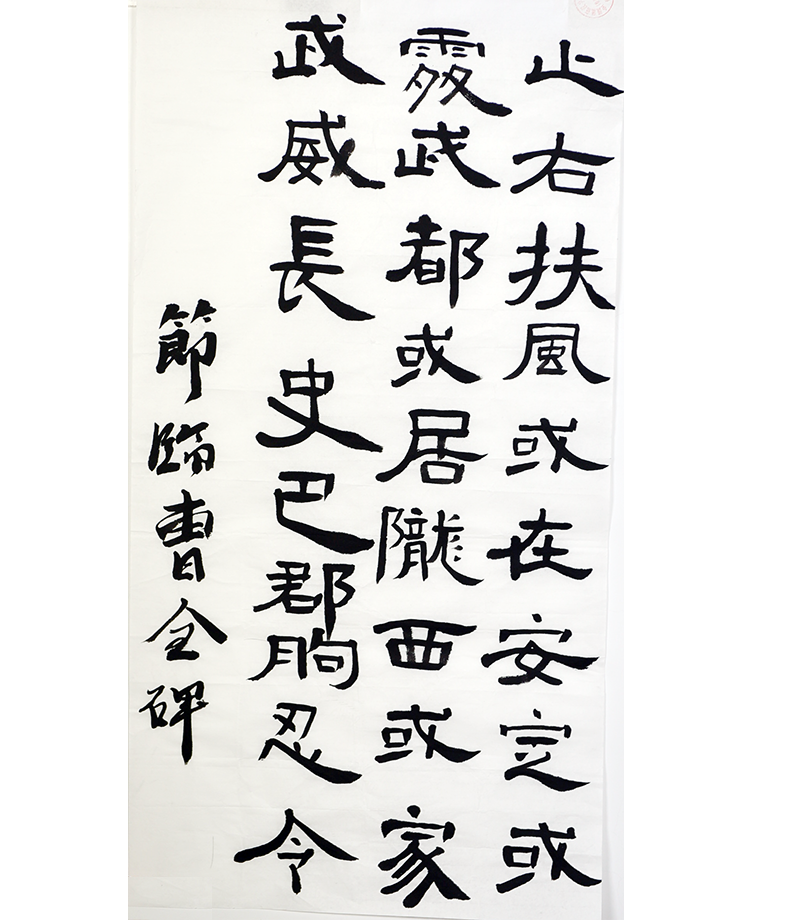 止右扶風或在安定或
處武都或居隴西或家
武威長史巴郡朐忍令
節臨曹全碑